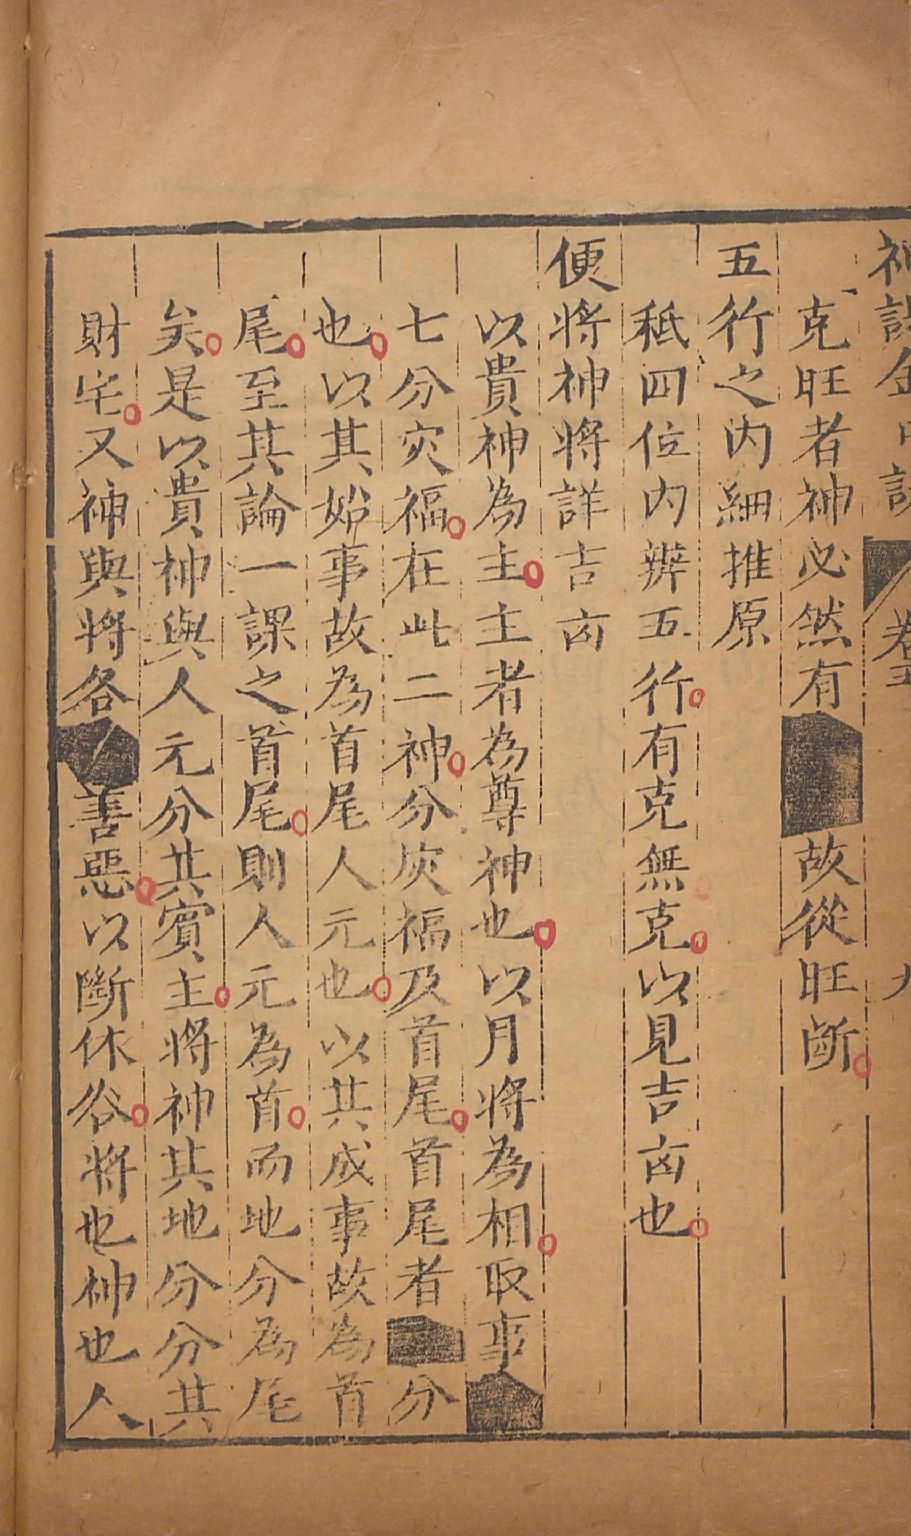 神課金口訣 卷五 九
克旺者神必然有 故從旺斷
五行之內細推原
秪四位內辨五行有克無克以見吉凶也
便將神將詳吉凶
以貴神為主主者為尊神也以月將為相取事
七分灾福在此二神分灾福及首尾首尾者 分
也以其始事故為首尾人元也以其成事故為首
尾至其論一課之首尾則人元為首而地分為尾
矣是以貴神與人元分其賓主將神其地分分其
財宅又神與將各 善惡以斷休咎將也神也人